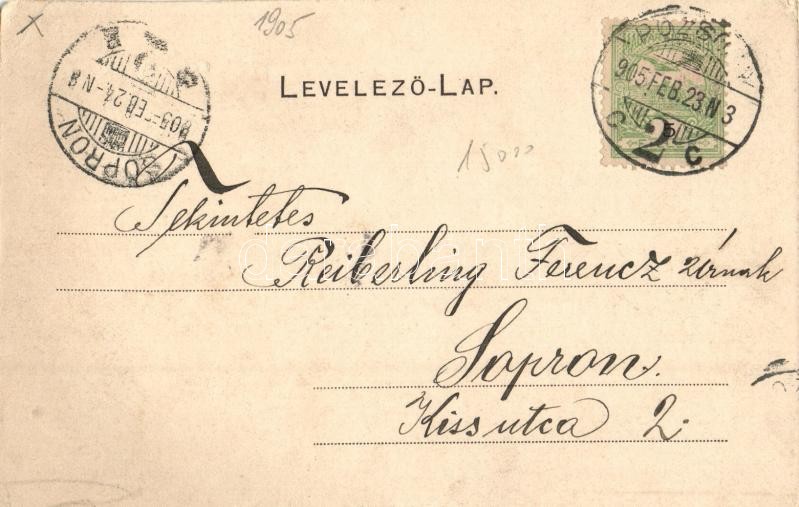 1905
POZSONY
905 FEB. 23. N 3
C 2 C
5
SOPRON
905 FEB. 24. N 8
LEVELEZŐ-LAP.
15000
Tekintetes
Reiberling Ferencz úrnak
Sopron.
Kiss utca 2.